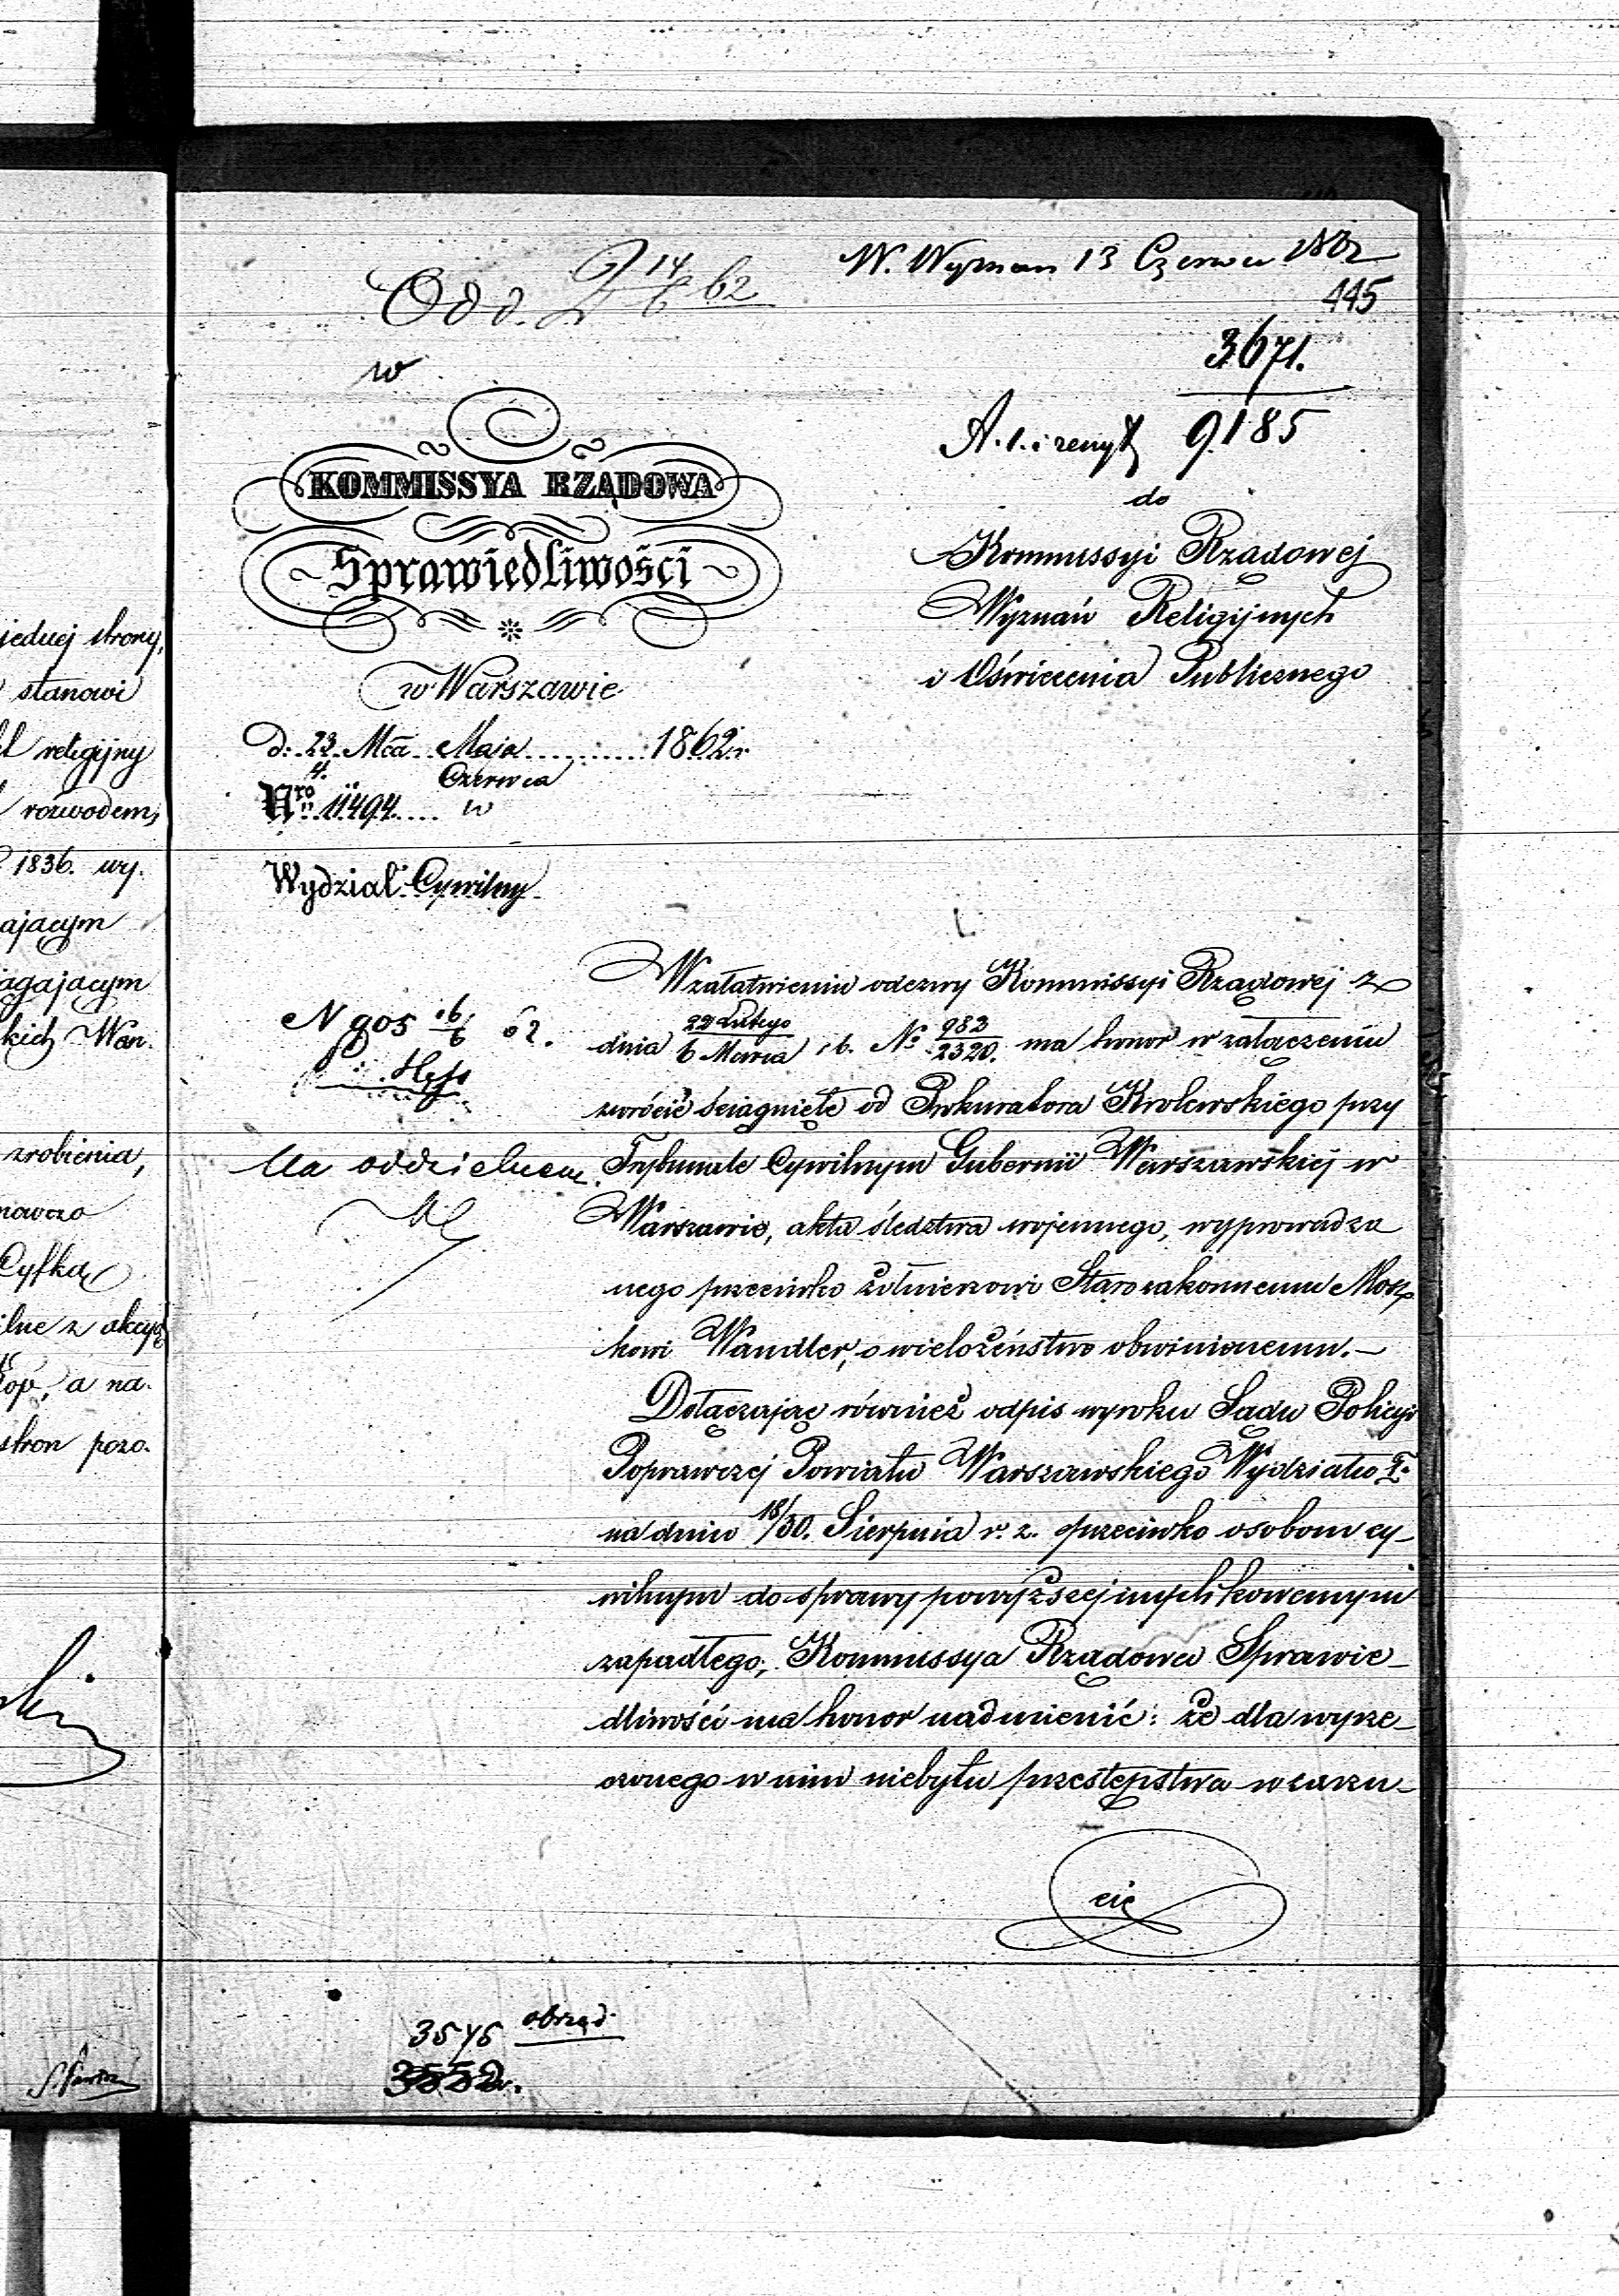 W. Wyznan 13 Czerwca 1862
Odd. 14/6 62
445
w
3671.
9185
KOMMISSYA RZĄDOWA
Sprawiedliwości
w Warszawie
D: 23 Mca Maja 1862 r
4. Czerwca
Nro 11494 w
Wydział Cywilny
do
Kommissyi Rządowej
Wyznań Religijnych
i Oświecenia Publicznego
N 905 62.
Na oddzielnem
W załatwieniu odezwy Kommissyi Rządowej z
dnia 22 Lutego / 6 Marca r b. No 983/2320. ma honor w załączeniu
zwrócić ściągnięte od Prokuratora Królewskiego przy
Trybunale Cywilnym Gubernii Warszawskiej w
Warszawie, akta śledztwa wojennego, wyprowadzo
nego przeciwko żołnierzowi Starozakonnemu Mosz
kowi Wandler, o wielożeństwo obwinionemu.—
Dołączając również odpis wyroku Sądu Policyi
Poprawczej Powiatu Warszawskiego Wydziału I.
na dniu 18/30. Sierpnia r. z. przeciwko osobom cy-
wilnym do sprawy powyższej wpływowanym
zapadłego, Kommissya Rządowa Sprawie-
dliwości ma honor nadmienić: że dla wyrze-
czonego w nim niebytu przestępstwa w zarzu-
cie
3545 obrząd
3552.
jednej strony,
stanowi
religijny
rozwodem,
1836. wy.
ającym
agającym
kich Wan.
zrobienia,
nawczo
Cyfką
ilne z akcyą
kop, a na.
stron pozo.